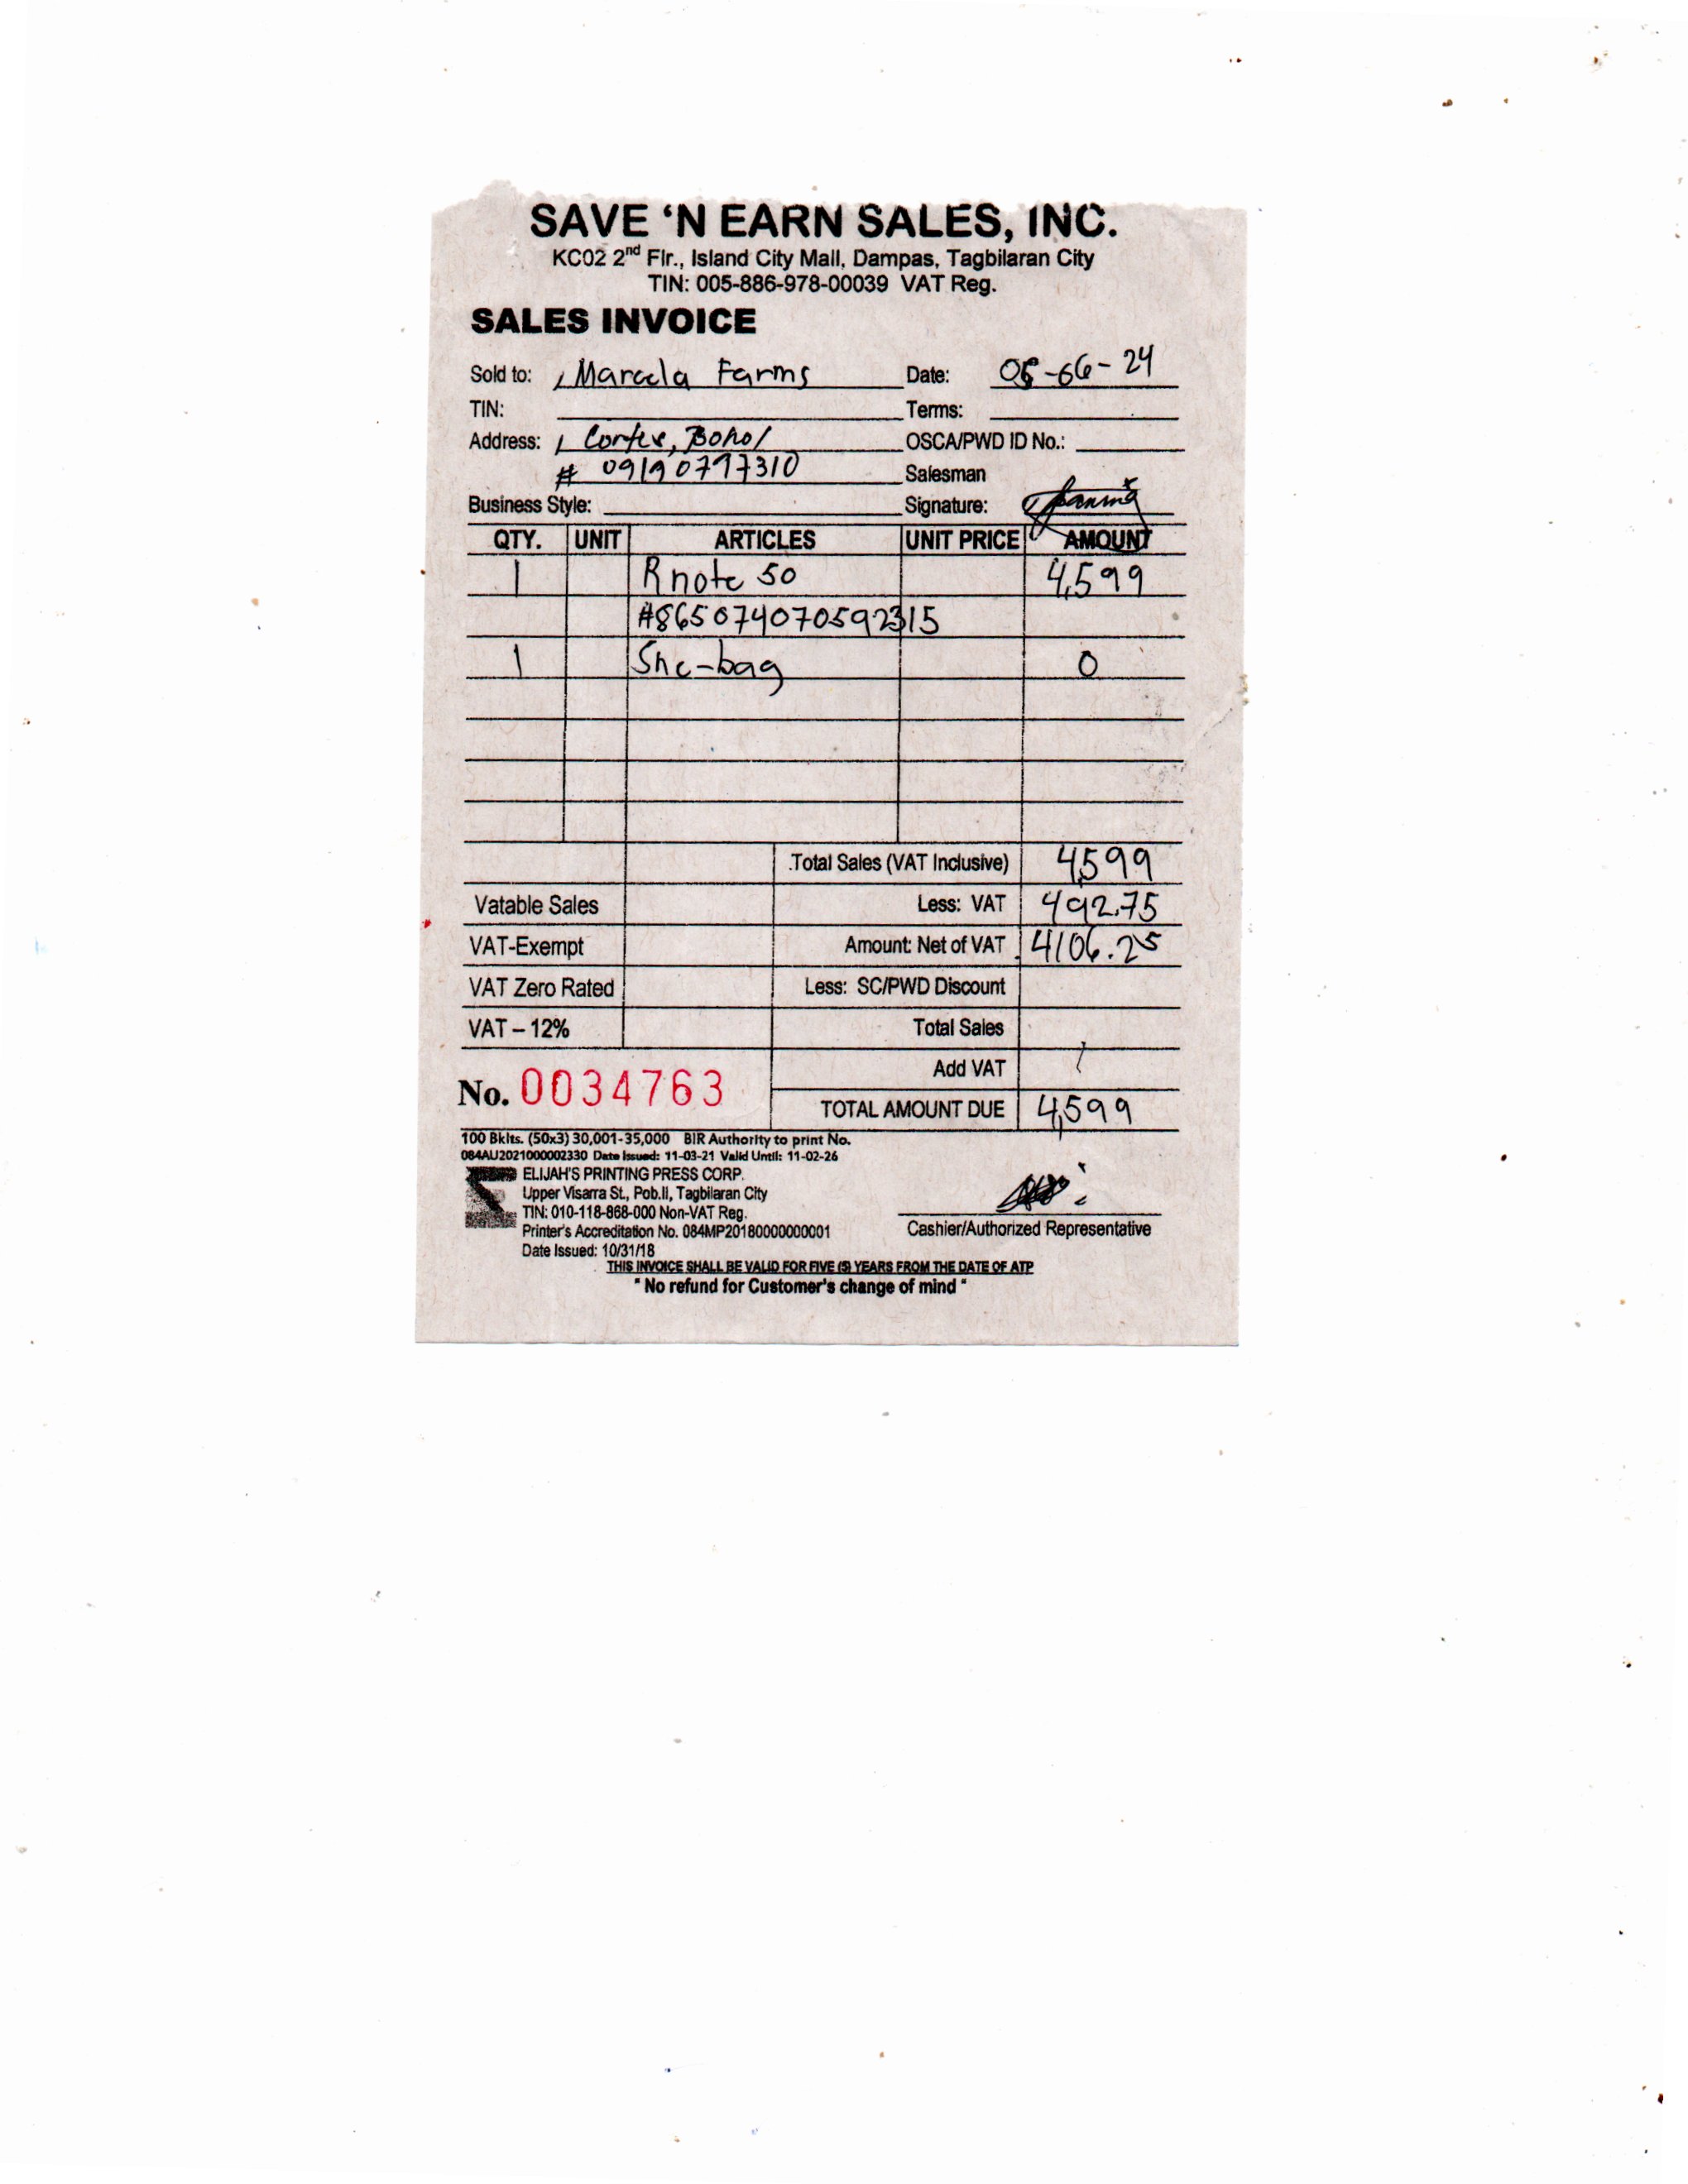 SAVE ‘N EARN SALES, INC.
KC02 2nd Flr., Island City Mall, Dampas, Tagbilaran City
TIN: 005-886-978-00039 VAT Reg.
SALES INVOICE
Sold to: Marcela Farms Date: -06-24
TIN: Terms:
Address: Cortes, Bohol OSCA/PWD ID No.:
# 09190797310 Salesman
Business Style: Signature:
QTY. UNIT ARTICLES UNIT PRICE AMOUNT
1 Rnote 50 4,599
#865074070592315
1 Sne-bag 0
Total Sales (VAT Inclusive) 4,599
Vatable Sales Less: VAT 492.75
VAT-Exempt Amount: Net of VAT 4106.25
VAT Zero Rated Less: SC/PWD Discount
VAT – 12% Total Sales
Add VAT
No. 0034763
TOTAL AMOUNT DUE 4,599
100 Bklts. (50x3) 30,001-35,000 BIR Authority to print No.
084AU2021000002330 Date Issued: 11-03-21 Valid Until: 11-02-26
ELIJAH'S PRINTING PRESS CORP.
Upper Visarra St., Pob.II, Tagbilaran City
TIN: 010-118-868-000 Non-VAT Reg.
Printer's Accreditation No. 084MP20180000000001
Date Issued: 10/31/18
Cashier/Authorized Representative
THIS INVOICE SHALL BE VALID FOR FIVE (5) YEARS FROM THE DATE OF ATP
" No refund for Customer's change of mind "